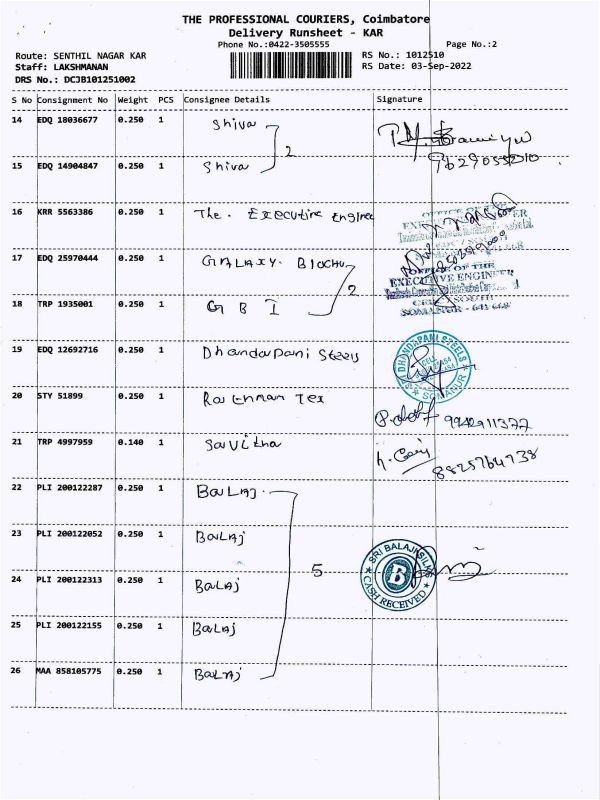 THE PROFESSIONAL COURIERS, Coimbatore
Delivery Runsheet - KAR
Phone No.:0422-3505555 Page No.:2
Route: SENTHIL NAGAR KAR RS No.: 1012510
Staff: LAKSHMANAN RS Date: 03-Sep-2022
DRS No.: DCJB101251002
S No Consignment No Weight PCS Consignee Details Signature
14 EDQ 18036677 0.250 1 Shiva
2
9629055210
15 EDQ 14904847 0.250 1 Shiva
16 KRR 5563386 0.250 1 The. Executive Enginee
OFFICE OF THE
17 EDQ 25970444 0.250 1 GALAXY. BIOCHU
2
OFFICE OF THE
EXECUTIVE ENGINEER
18 TRP 1935001 0.250 1 G B I
SOMANUR - 641 668
19 EDQ 12692716 0.250 1 Dhandapani Steels
DHANDAPANI STEELS
SOMANUR
20 STY 51899 0.250 1 Tex
9942911377
21 TRP 4997959 0.140 1 Savitha
8825764738
22 PLI 200122287 0.250 1 BaLaj.
23 PLI 200122052 0.250 1 BaLaj
5
SRI BALAJI SILKS
B
CASH RECEIVED
24 PLI 200122313 0.250 1 BaLaj
25 PLI 200122155 0.250 1 BaLaj
26 MAA 858105775 0.250 1 BaLaj